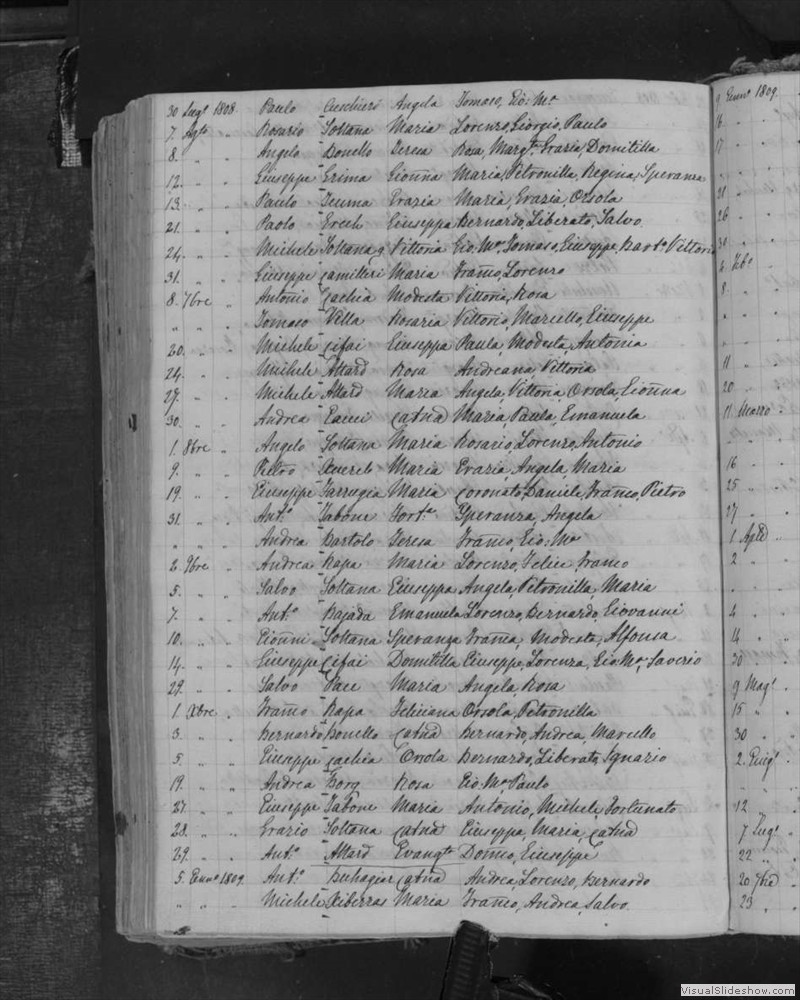 30 Lug.º 1808 Paulo Cuschieri Angela Tomaso, Gio: M.ª
7 Ag.to " Rosario Soltana Maria Lorenzo, Giorgio, Paulo
8. " " Angelo Bonello Teresa Rosa, Marg.ta Grazia, Domitilla
12. " " Giuseppe Grima Gioñna Maria, Petronilla, Regina, Speranza
13. " " Paulo Grazia Maria, Grazia, Orsola
21. " " Paolo Grech Giuseppa Bernardo, Liberato, Salvo
24. " " Michele Soltana Vittoria Gio. M.ª, Tomaso, Giuseppe, Bart.º Vittorio
31. " " Giuseppe Camilleri Maria Franco, Lorenzo
8. 7bre " Antonio Zachia Modesta Vittoria, Rosa
" " " Tomaso Vella Rosaria Vittorio, Marcello, Giuseppe
20. " " Michele Cifai Giuseppa Paula, Modesta, Antonia
24. " " Michele Attard Rosa Andreana, Vittoria
27. " " Michele Attard Maria Angela, Vittoria, Orsola, Gioñna
30. " " Andrea Cat̃na Maria, Paula, Emanuela
1. 8bre " Angelo Soltana Maria Rosario, Lorenzo, Antonio
9. " " Pietro Xuereb Maria Grazia, Angela, Maria
19. " " Giuseppe Farrugia Maria Coronato, Daniele, Franco, Pietro
31. " " Ant.º Tabone Fort.ª Speranza, Angela
" " " Andrea Bartolo Teresa Franco, Gio: M.ª
2. 9bre " Andrea Rapa Maria Lorenzo, Felice, Franco
5. " " Salvo Soltana Giuseppa Angela, Petronilla, Maria
7. " " Ant.º Bajada Emanuela Lorenzo, Bernardo, Giovanni
10. " " Gioñni Soltana Speranza Franca, Modesta, Alfonsa
14. " " Giuseppe Cifai Domitilla Giuseppe, Lorenza, Gio: M.ª, Saverio
29. " " Salvo Pace Maria Angela, Rosa
1. Xbre " Franco Rapa Feliciana Orsola, Petronilla
3. " " Bernardo Bonello Cat̃na Bernardo, Andrea, Marcello
5. " " Giuseppe Zachia Orsola Bernardo, Liberato, Ignazio
19. " " Andrea Borg Rosa Gio: M.ª, Paulo
27. " " Giuseppe Tabone Maria Antonio, Michele, Fortunato
28. " " Grazio Soltana Cat̃na Giuseppa, Maria, Cat̃na
29. " " Ant.º Attard Evang.ta Giuseppe
5. Genn.º 1809. Ant.º Buhagiar Cat̃na Andrea, Lorenzo, Bernardo
" " " Michele Xiberras Maria Franco, Andrea, Salvo.
9 Genn.º 1809
16 " "
17 " "
" " "
21 " "
26 " "
30 " "
Feb.º "
8 " "
11 " "
20 " "
11 Marzo "
16 " "
25 " "
27 " "
1 Aple "
2 " "
4 " "
14 " "
30 " "
9 Mag.º "
15 " "
30 " "
2. Giug.º "
12 " "
7 Lug.º "
22 " "
20 7bre
23 " "
VisualSlideshow.com